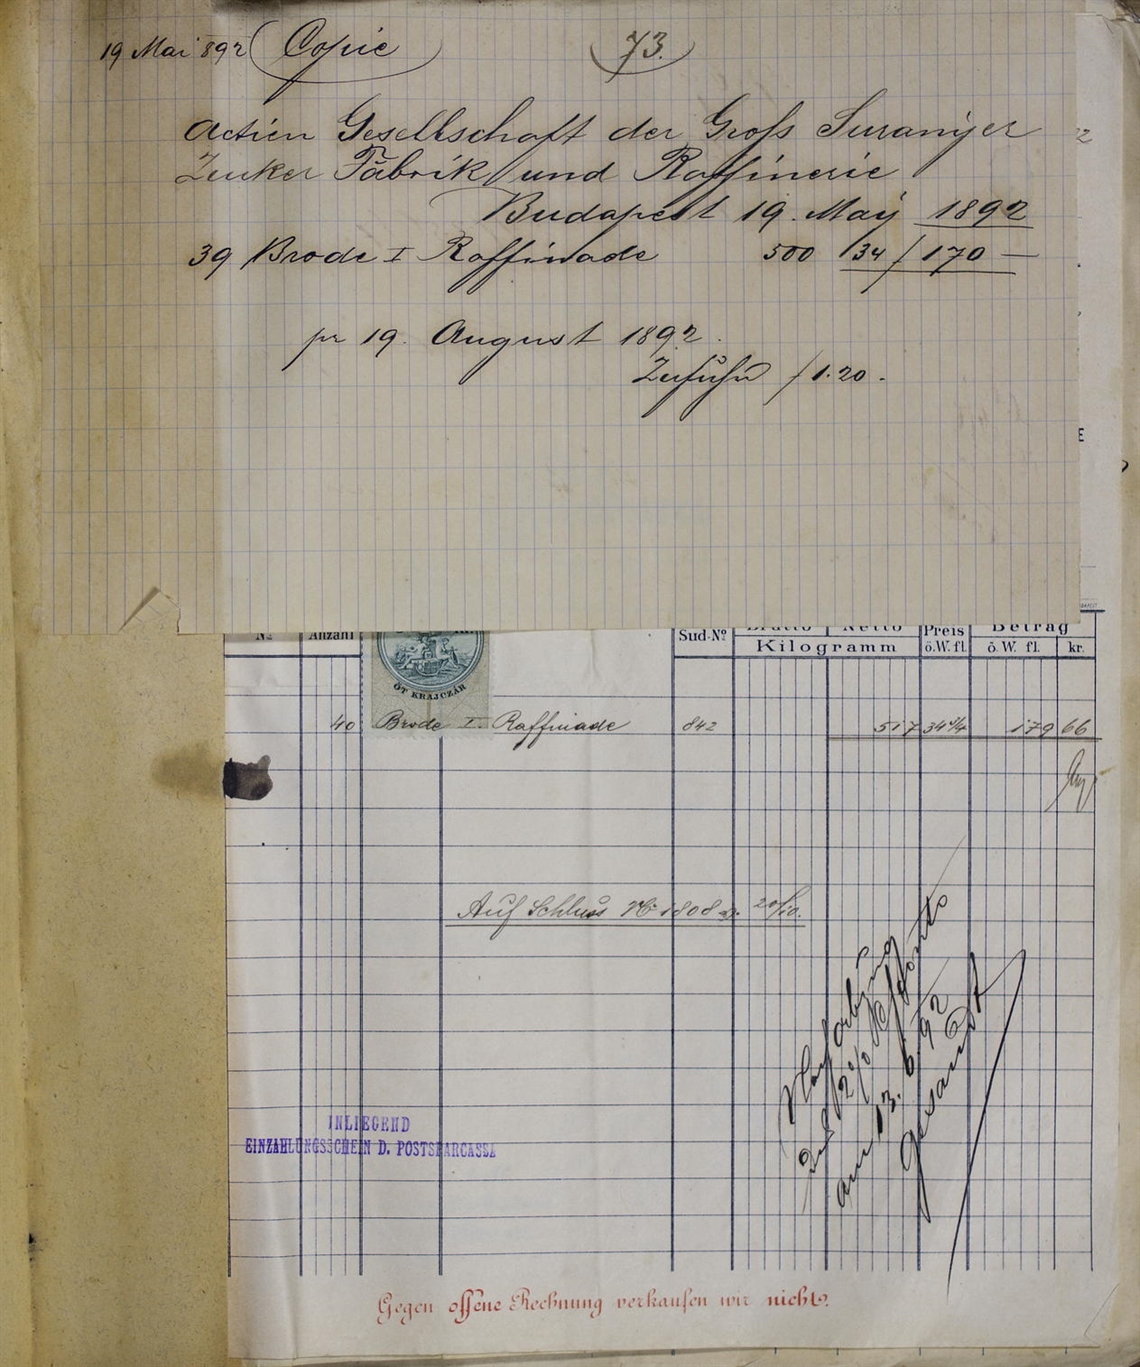 19 Mai 892 Copie 73.
Actien Gesellschaft der Gross Suranyer
Zucker Fabrik und Raffinerie
Budapest 19. May 1892
39 Brode I Raffinade 500 34 / 170 —
pr 19. August 1892.
Zufuhr / 1.20.
No Anzahl Sud-No Brutto Netto Preis Betrag
Kilogramm ö.W.fl. ö. W. fl. kr.
ÖT KRAJCZÁR
40 Brode I. Raffinade 842 517 34 3/4 179 66
Auf Schluss No 1808 20/10.
2%
am 13. 6. 92
gesandt
INLIEGEND
EINZAHLUNGSSCHEIN D. POSTSPARCASSA
Gegen offene Rechnung verkaufen wir nicht.